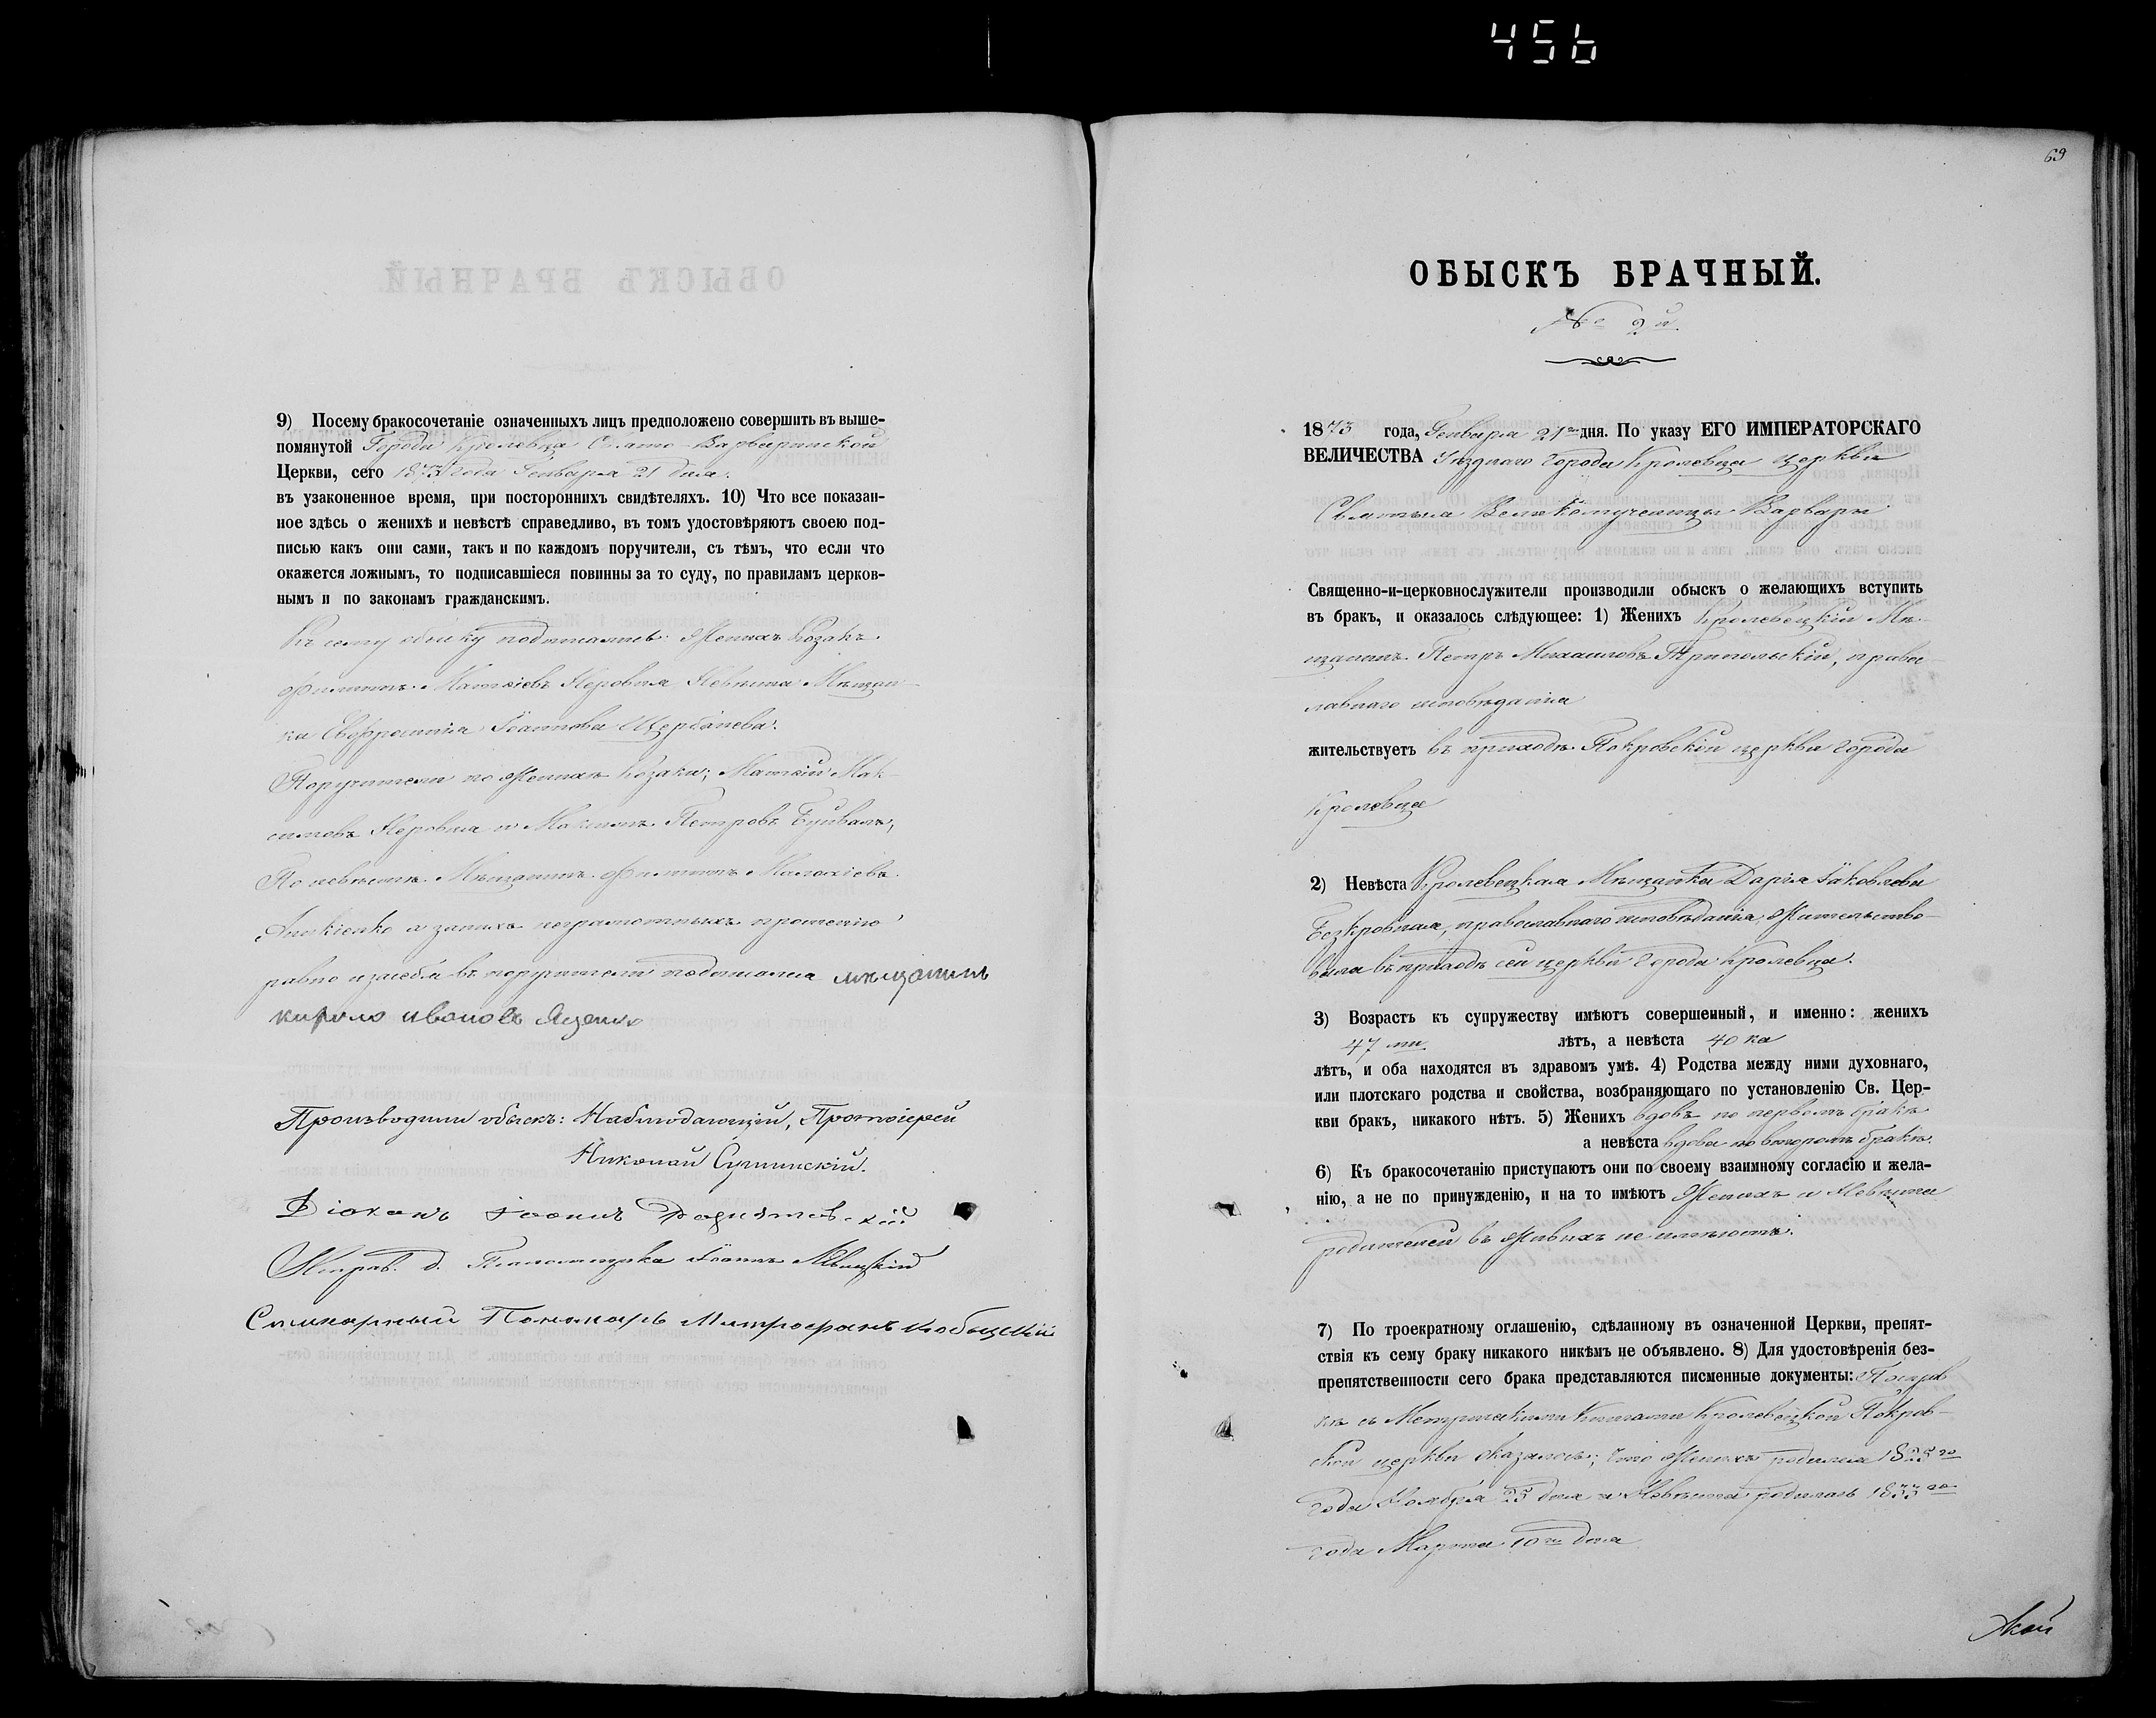 456
9) Посему бракосочетаніе означенныхъ лицъ предположено совершить въ выше-
помянутой Города Кролевца Свято-Варваринской
Церкви, сего 1873 года Генваря 21 дня.
въ узаконенное время, при постороннихъ свидѣтеляхъ. 10) Что все показан-
ное здѣсь о женихѣ и невѣстѣ справедливо, въ томъ удостовѣряютъ своею под-
писью какъ они сами, такъ и по каждомъ поручители, съ тѣмъ, что если что
окажется ложнымъ, то подписавшіеся повинны за то суду, по правиламъ церков-
нымъ и по законамъ гражданскимъ.
Къ сему обыску подписались: Женихъ Козакъ
Филиппъ Матвіевъ Неровня Невѣста Мѣщан-
ка Евфросинія Іоаннова Щербанева.
Поручители по Женихѣ Козаки: Матвій Мак-
симовъ Неровня и Максимъ Петровъ Буйвалъ,
По невѣстѣ Мѣщанинъ Филиппъ Малахіевъ
а занихъ неграмотныхъ прошенію
равно и засебя въ поручители подписался мѣщанинъ
кирило ивановъ Яценко
Производили обыскъ: Наблюдающій, Протоіерей
Николай Сушинскій.
Діаконъ Іоаннъ
Исправ. д. Псаломщика Іоаннъ Левицкій
Пономарь Митрофанъ Клобуцкій
69
ОБЫСКЪ БРАЧНЫЙ.
№ 2й
1873 года, Генваря 21го дня. По указу ЕГО ИМПЕРАТОРСКАГО
ВЕЛИЧЕСТВА Уѣзднаго города Кролевца церкви
Святыя Великомученицы Варвары
Священно-и-церковнослужители производили обыскъ о желающихъ вступить
въ бракъ, и оказалось слѣдующее: 1) Женихъ Кролевецкій Мѣ-
щанинъ Петръ Михаиловъ Трипольскій, право
славнаго исповѣданія
жительствуетъ въ приходѣ Покровской церкви города
Кролевца
2) Невѣста Кролевецкая Мѣщанка Дарія Іаковлева
Безкровная, православнаго исповѣданія, Жительство-
вала въ приходѣ сей церкви города Кролевца.
3) Возрастъ къ супружеству имѣютъ совершенный, и именно: женихъ
47 ми лѣтъ, а невѣста 40 ка
лѣтъ, и оба находятся въ здравомъ умѣ. 4) Родства между ними духовнаго,
или плотскаго родства и свойства, возбраняющаго по установленію Св. Цер-
кви бракъ, никакого нѣтъ. 5) Женихъ вдовъ по первомъ бракѣ
а невѣста вдова по второмъ бракѣ.
6) Къ бракосочетанію приступаютъ они по своему взаимному согласію и жела-
нію, а не по принужденію, и на то имѣютъ Женихъ и Невѣста
родителей въ живихъ не имѣютъ.
7) По троекратному оглашенію, сдѣланному въ означенной Церкви, препят-
ствія къ сему браку никакого никѣмъ не объявлено. 8) Для удостовѣренія без-
препятственности сего брака представляются писменные документы: По справ
кѣ съ Метрическими Книгами Кролевецкой Покров-
ской церкви оказалось; что Женихъ родился 1825го
года Ноября 25 дня а Невѣста родилась 1833го
года Марта 10го дня